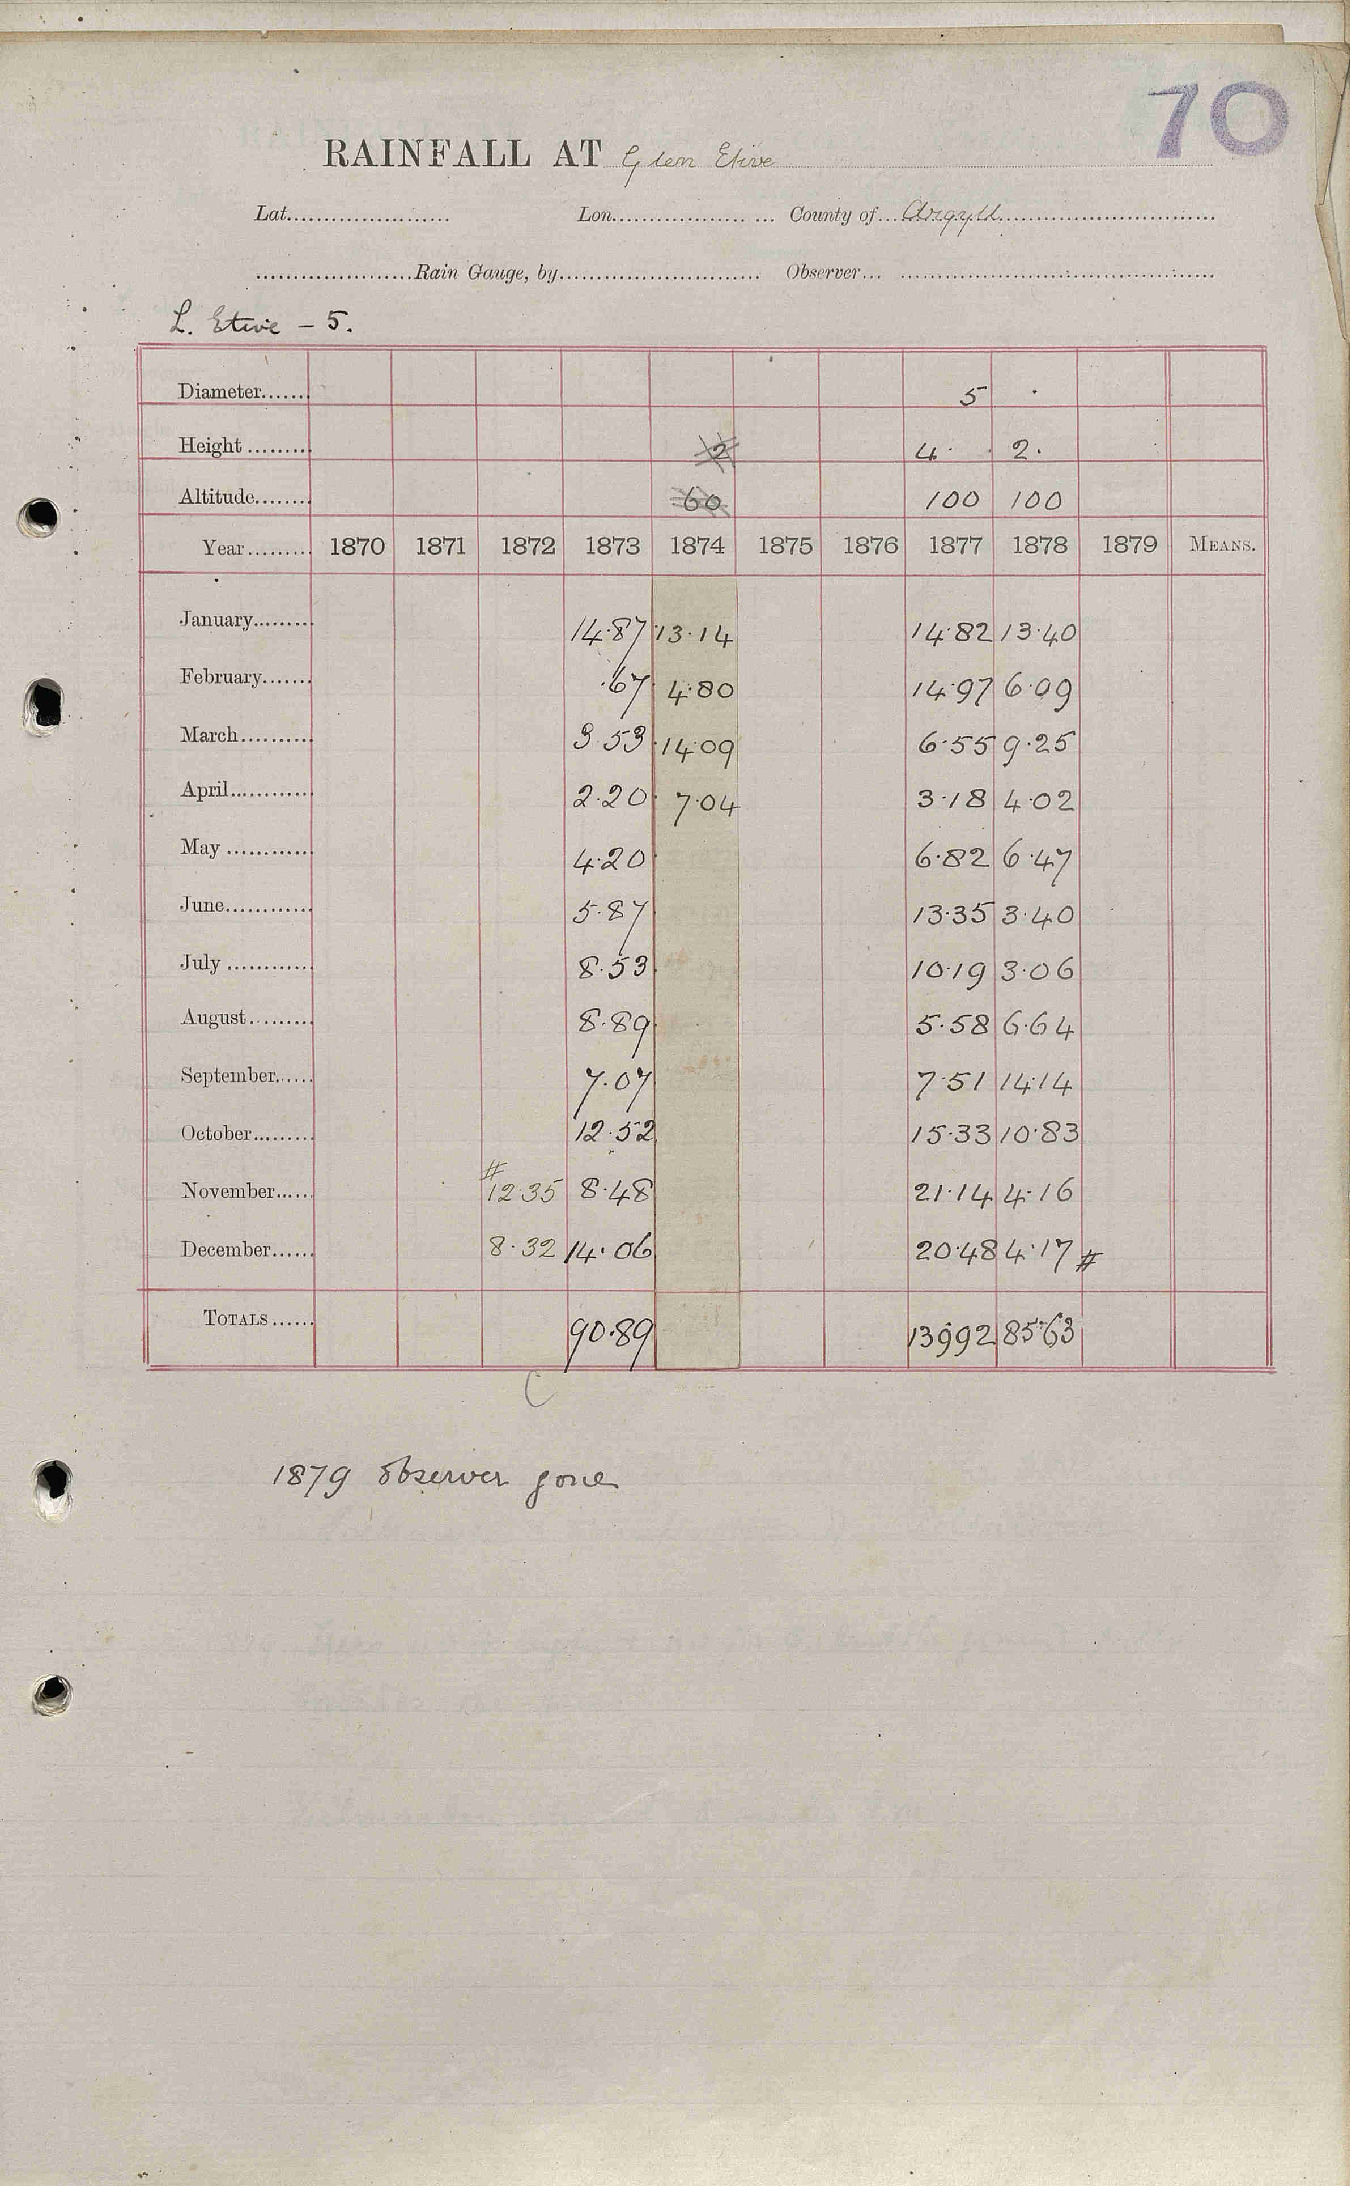 70
RAINFALL AT Glen Etive
Lat. Lon. County of Argyll
Rain Gauge, by Observer
L. Etive – 5.
Diameter 5 .
Height 2 4 . 2 .
Altitude 60 100 100
Year 1870 1871 1872 1873 1874 1875 1876 1877 1878 1879 MEANS.
January 14.87 13.14 14.82 13.40
February .67 4.80 14.97 6.09
March 3.53 14.09 6.55 9.25
April 2.20 7.04 3.18 4.02
May 4.20 6.82 6.47
June 5.87 13.35 3.40
July 8.53 10.19 3.06
August 8.89 5.58 6.64
September 7.07 7.51 14.14
October 12.52 15.33 10.83
November # 12.35 8.48 21.14 4.16
December 8.32 14.06 20.48 4.17 #
TOTALS 90.89 139.92 85.63
C
1879 observer gone